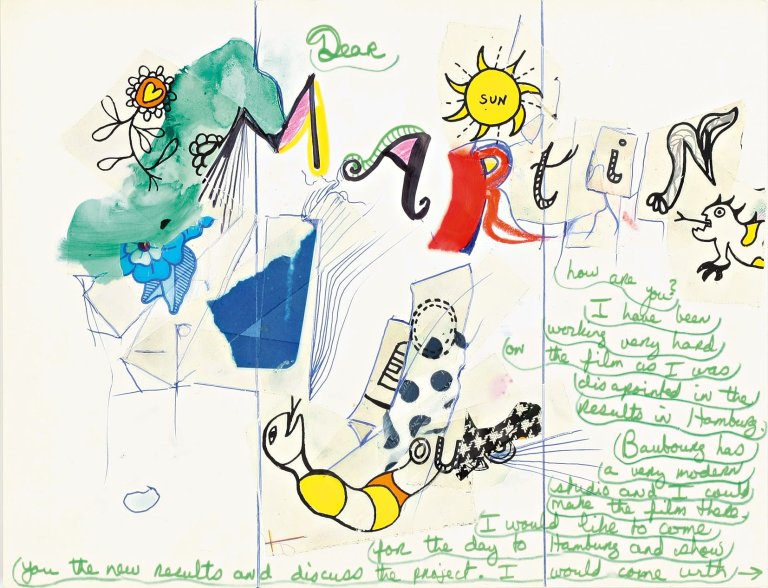 Dear
SUN
MARtiN
how are you?
I have been
working very hard
on the film as I was
disapointed in the
results in Hamburg.
Baubourg has
a very modern
studio and I could
make the film there.
I would like to come
for the day to Hamburg and show
you the new results and discuss the project. I would come with →